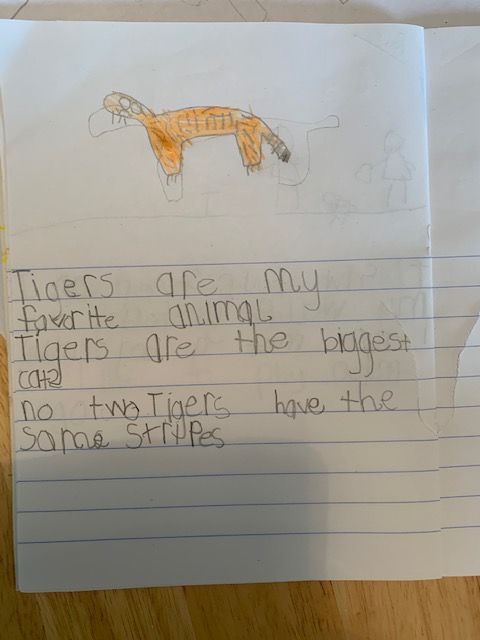 Tigers are my
favorite animal
Tigers are the biggest
cats
no two Tigers have the
same strypes